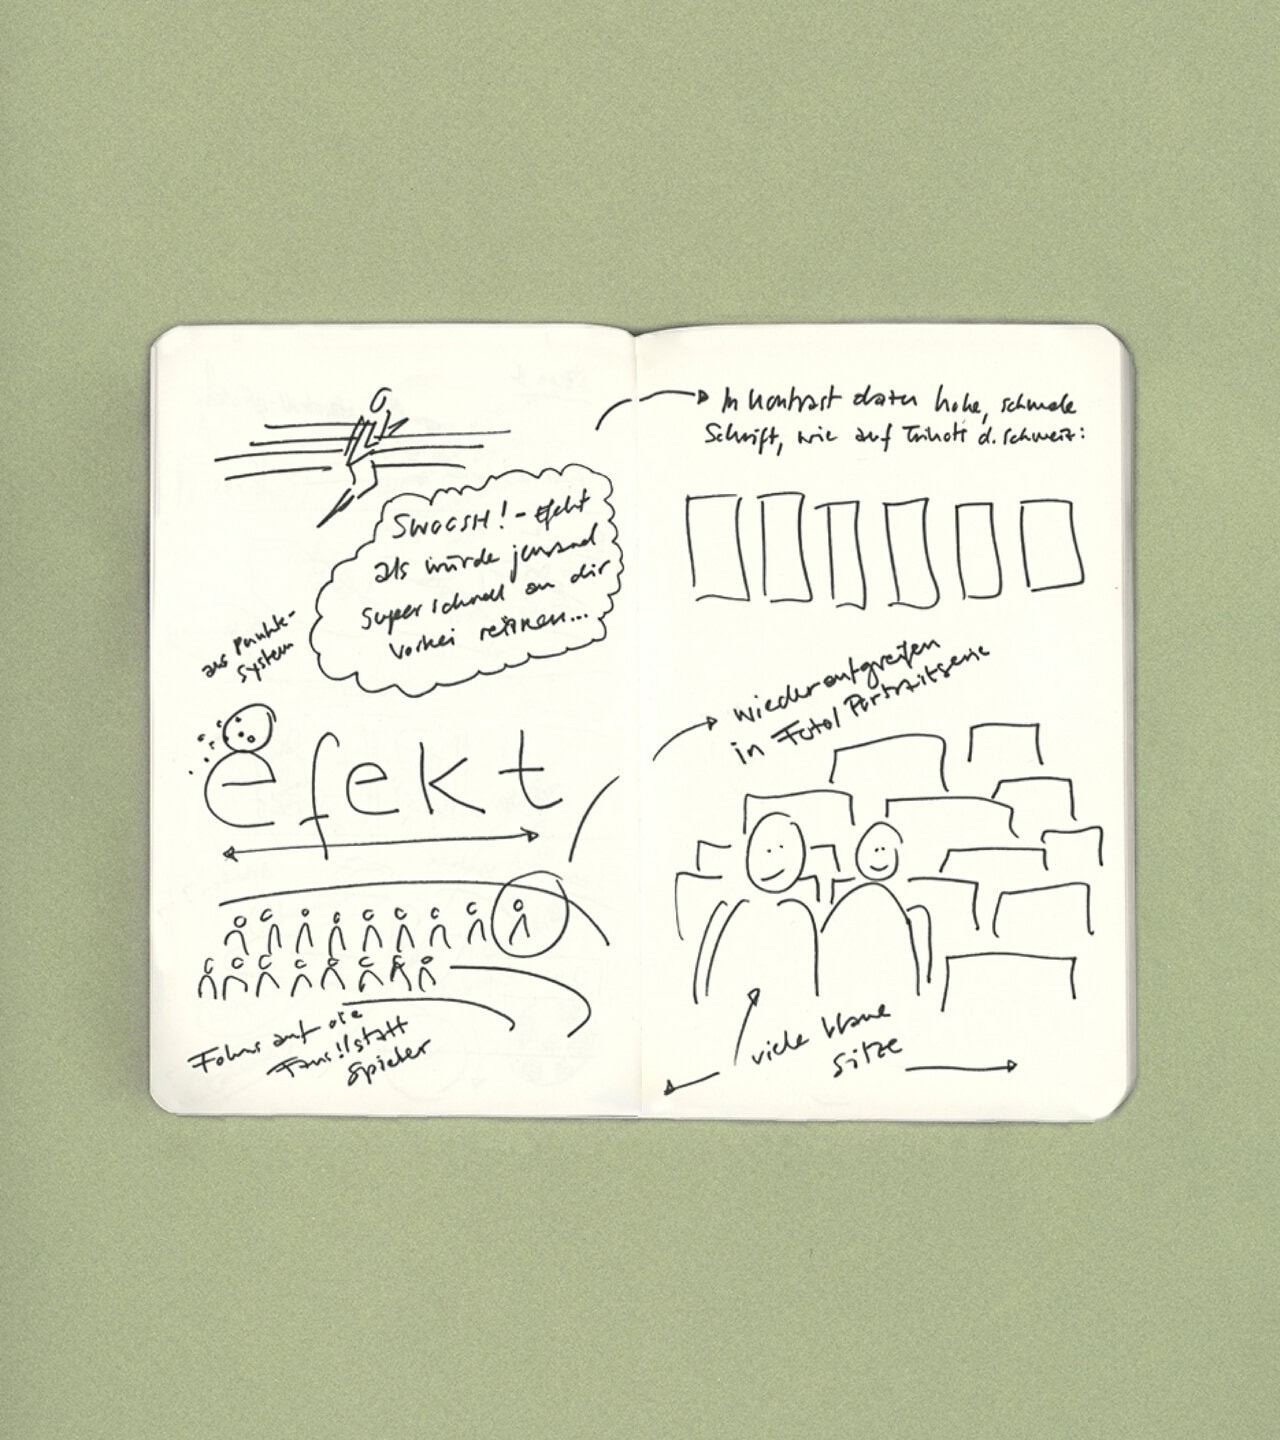 SWOOSH! - efekt
als würde jemand
super schnell an dir
vorbei rennen...
aus Punkte-
system
efekt
Fokus auf die
Fans!! statt
Spieler
In Kontrast dazu hohe, schmale
Schrift, wie auf Trikots d. Schweiz:
wiederaufgreifen
in Foto/Portraitserie
viele blaue
Sitze